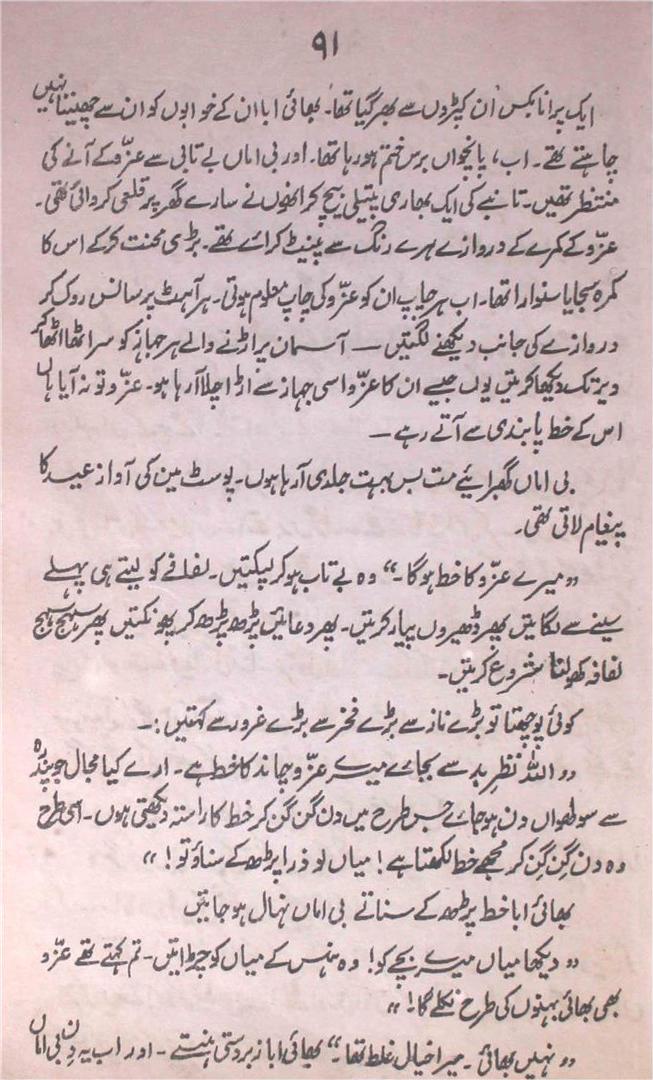 ۹۱
ایک پرانا بکس ان کپڑوں سے بھر گیا تھا۔ بھائی ابا ان کے خوابوں کو ان سے چھیننا نہیں
چاہتے تھے۔ اب، پانچواں برس ختم ہو رہا تھا۔ اور بی اماں بے تابی سے عزّو کے آنے کی
منتظر تھیں۔ تانبے کی ایک بھاری پتیلی بیچ کر انھوں نے سارے گھر پر قلعی کروائی تھی۔
عزّو کے کمرے کے دروازے ہرے رنگ سے پینٹ کرائے تھے۔ بڑی محنت کر کے اس کا
کمرہ سجایا سنوارا تھا۔ اب ہر چاپ ان کو عزّو کی چاپ معلوم ہوتی۔ ہر آہٹ پر سانس روک کر
دروازے کی جانب دیکھنے لگتیں — آسمان پر اڑنے والے ہر جہاز کو سر اٹھا اٹھا کر
دیر تک دیکھا کرتیں یوں جیسے ان کا عزّو اسی جہاز سے اڑا چلا آرہا ہو۔ عزّو تو نہ آیا ہاں
اس کے خط پابندی سے آتے رہے —
بی اماں گھبرائیے مت بس بہت جلدی آرہا ہوں۔ پوسٹ مین کی آواز عید کا
پیغام لاتی تھی۔
”میرے عزّو کا خط ہوگا۔“ وہ بے تاب ہو کر لپکتیں۔ لفافے کو لیتے ہی پہلے
سینے سے لگاتیں پھر ڈھیروں پیار کرتیں۔ پھر دعائیں پڑھ پڑھ کر پھونکتیں پھر سہج سہج
لفافہ کھولنا شروع کرتیں۔
کوئی پوچھتا تو بڑے ناز سے بڑے فخر سے بڑے غرور سے کہتیں:۔
”اللہ نظرِ بد سے بچائے میرے عزّو چاند کا خط ہے۔ ارے کیا مجال جو پندرہ
سے سولھواں دن ہو جائے جس طرح میں دن گن گن کر خط کا راستہ دیکھتی ہوں۔ اسی طرح
وہ دن گن گن کر مجھے خط لکھتا ہے! میاں لو ذرا پڑھ کے سناؤ تو!“
بھائی ابا خط پڑھ کے سناتے بی اماں نہال ہو جاتیں
”دیکھا میاں میرے بچے کو! وہ ہنس کے میاں کو چڑاتیں۔ تم کہتے تھے عزّو
بھی بھائی بہنوں کی طرح نکلے گا!“
”نہیں بھائی۔ میرا خیال غلط تھا۔“ بھائی ابا زبردستی ہنستے۔ اور اب یہ دن بی اماں